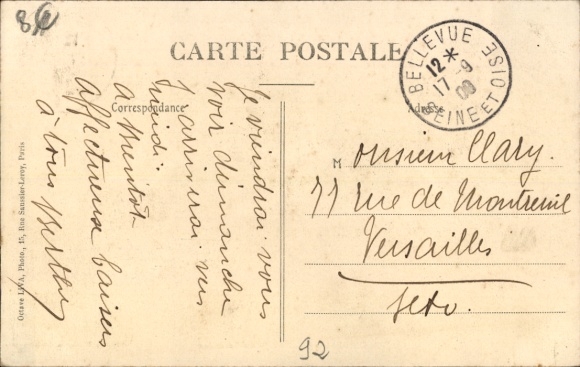 84
CARTE POSTALE
BELLEVUE
SEINE ET OISE
12 *
17 - 9
Correspondance
Adresse
Je viendrai vous
voir dimanche
J'arriverai vers
midi.
A bientôt
affectueux baisers
à tous Berthe
Monsieur Clary.
11 rue de Montreuil
Versailles
S et O.
92
Octave LIVA, Photo., 15, Rue Saussier-Leroy, Paris